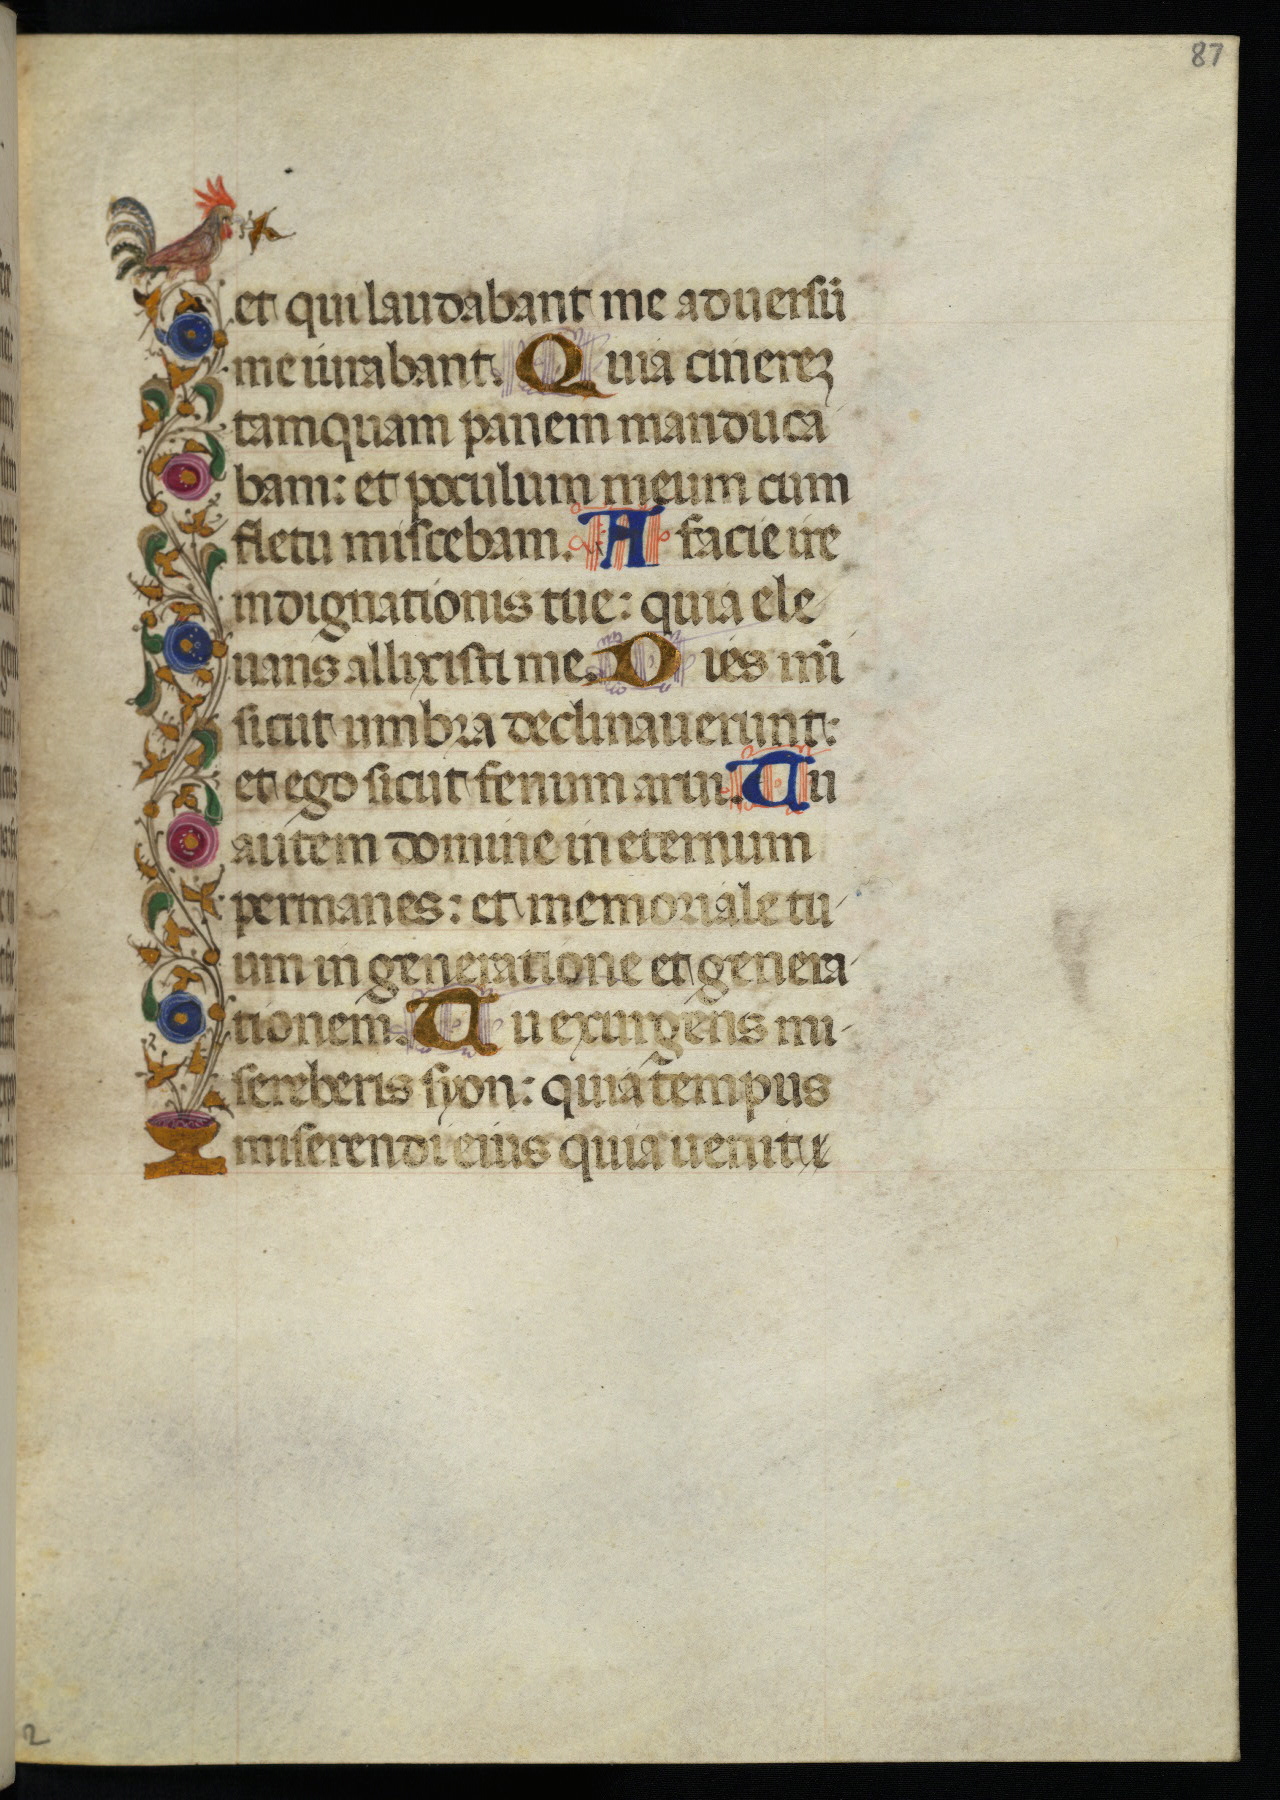 87
et qui laudabant me aduersū
me iurabant. Quia cinereꝫ
tamquam panem manduca
bam: et poculum meum cum
fletu miscebam. A facie ire
indignationis tue: quia ele
uans allixisti me. Dies mı̄
sicut umbra declinauerunt:
et ego sicut fenum arui. Tu
autem domine in eternum
permanes: et memoriale tu
um in generatione et genera
tionem. Tu exurgens mi
sereberis syon: quia tempus
miserendi eius quia uenit
2